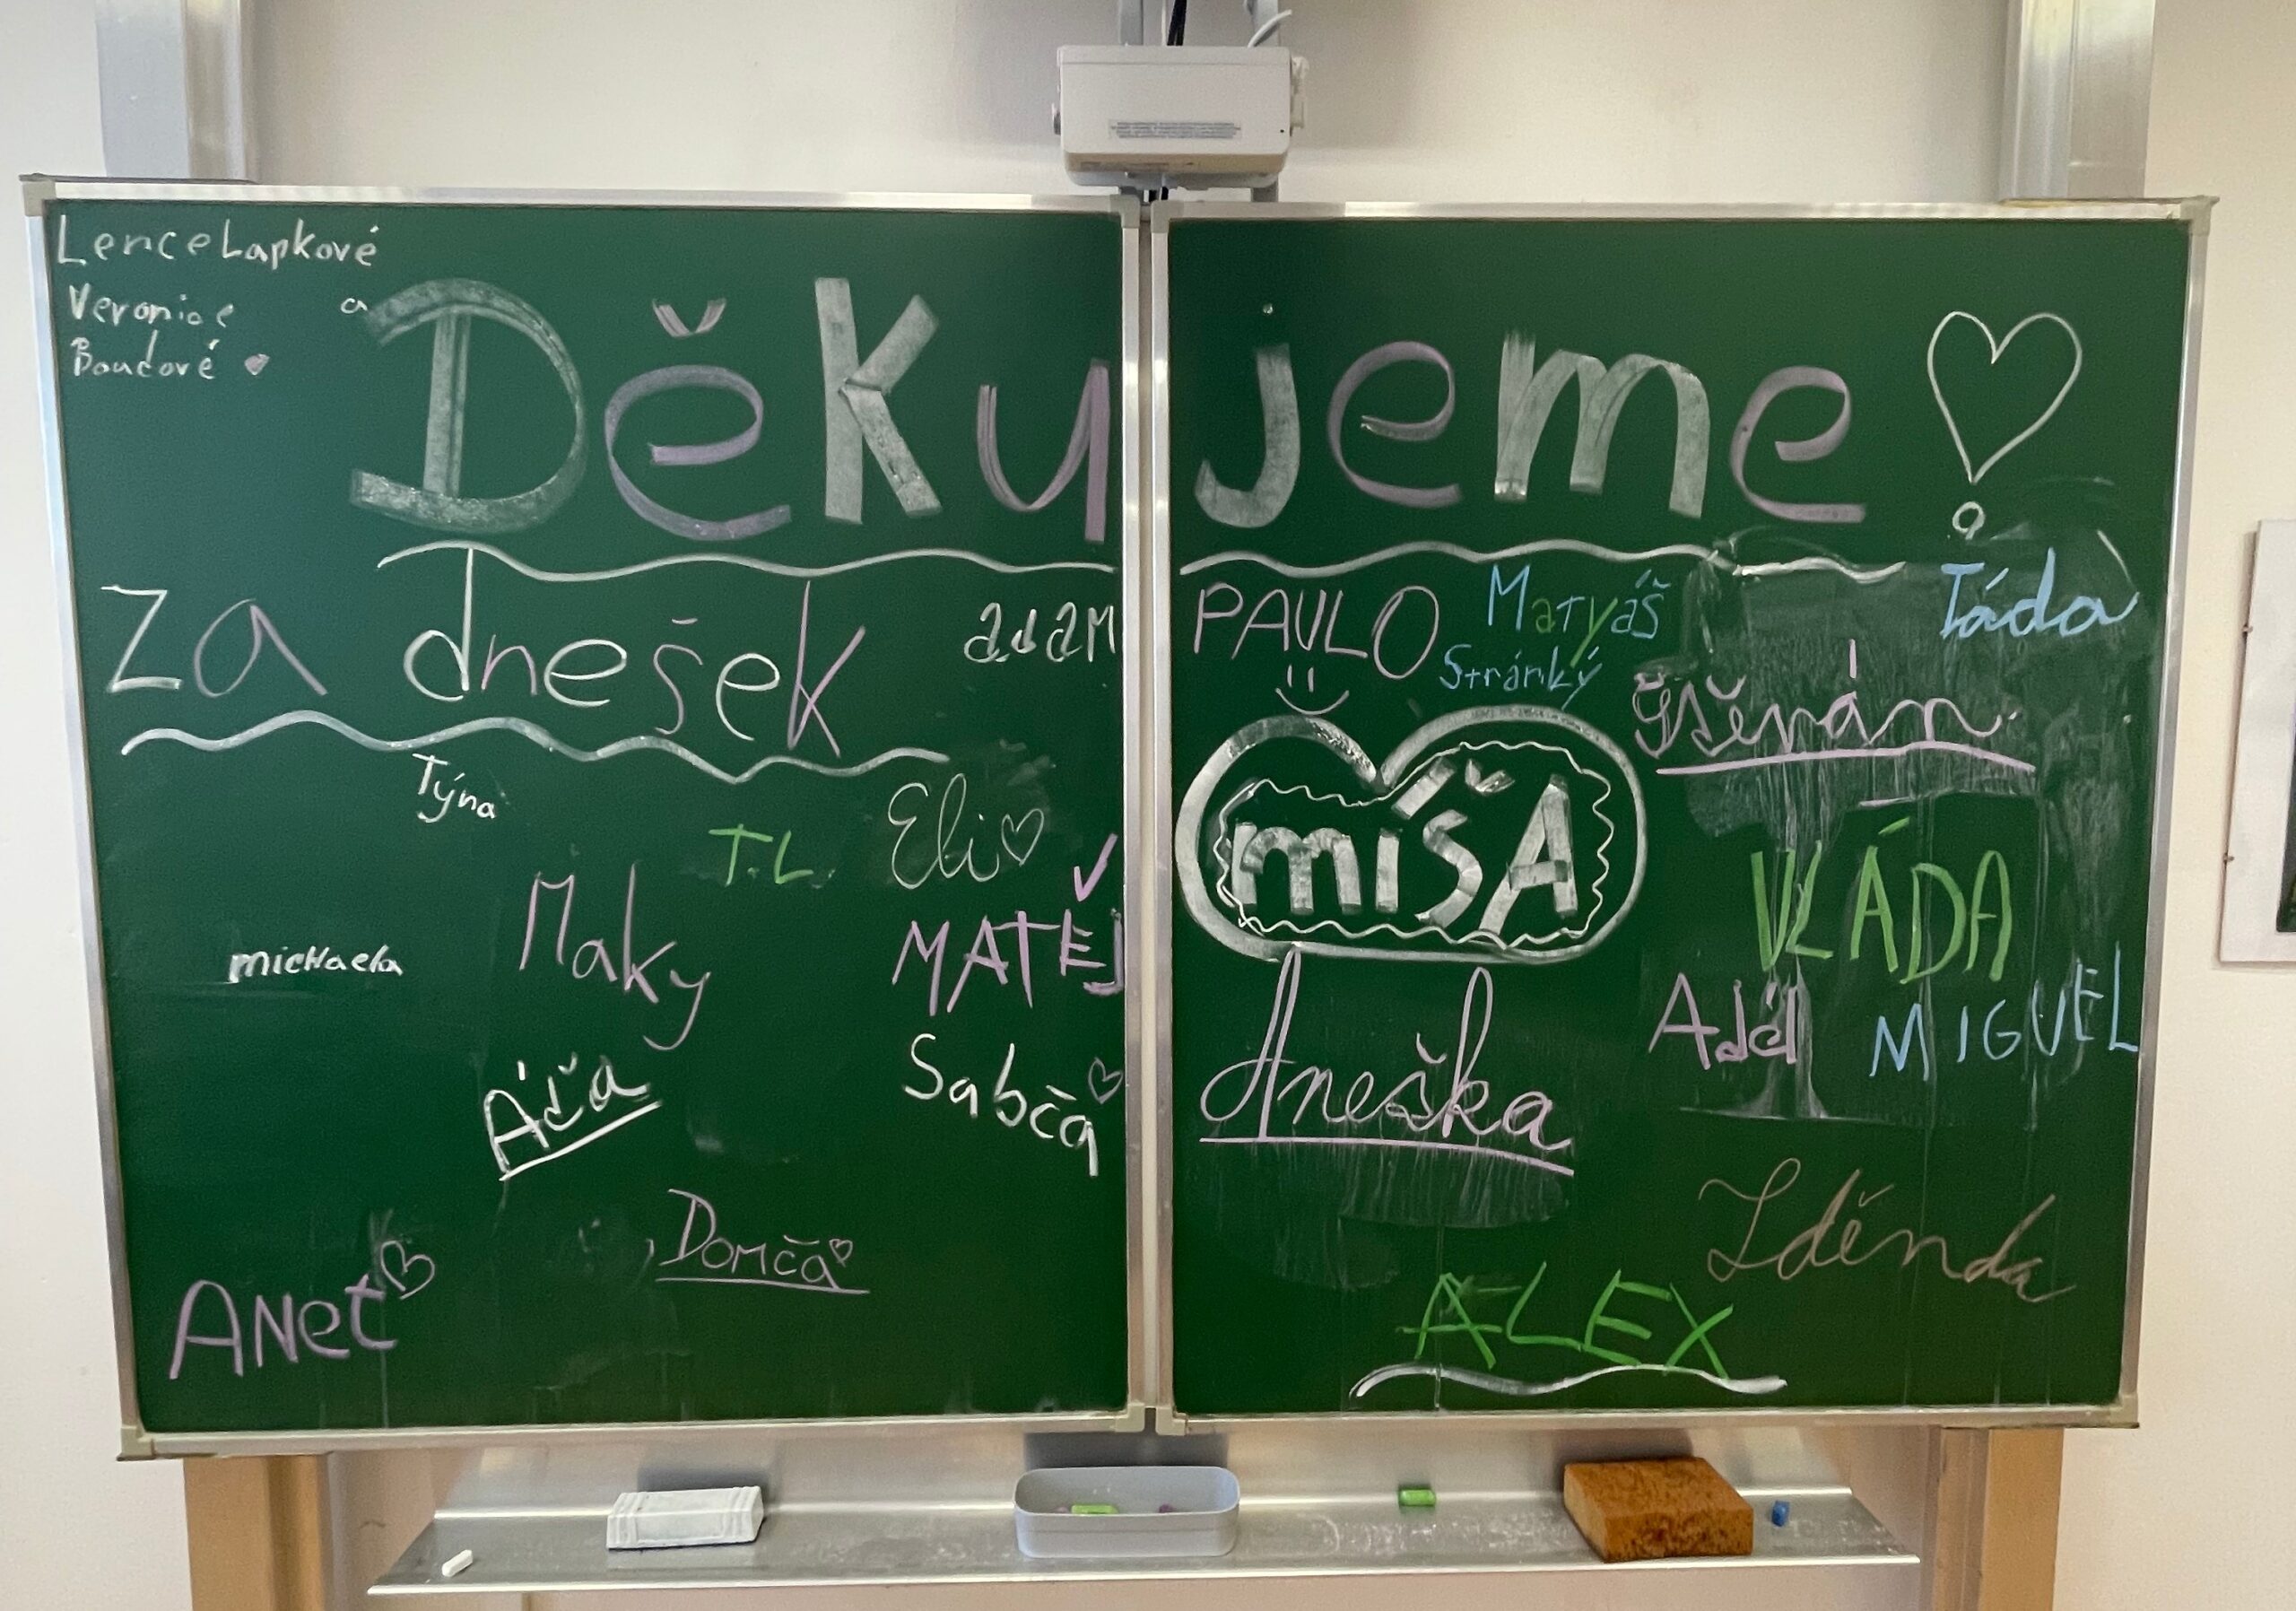 Lence Lapkové
a
Veronice
Boudové
Děkujeme
za dnešek
adam
PAVLO
Matyáš
Stránký
Táda
Týna
T.L.
Eli
MÍŠA
Maky
MATĚJ
VLÁDA
michaela
Adél
MIGUEL
Áďa
Sabča
Aneška
Domča
Zděnda
ANet
ALEX